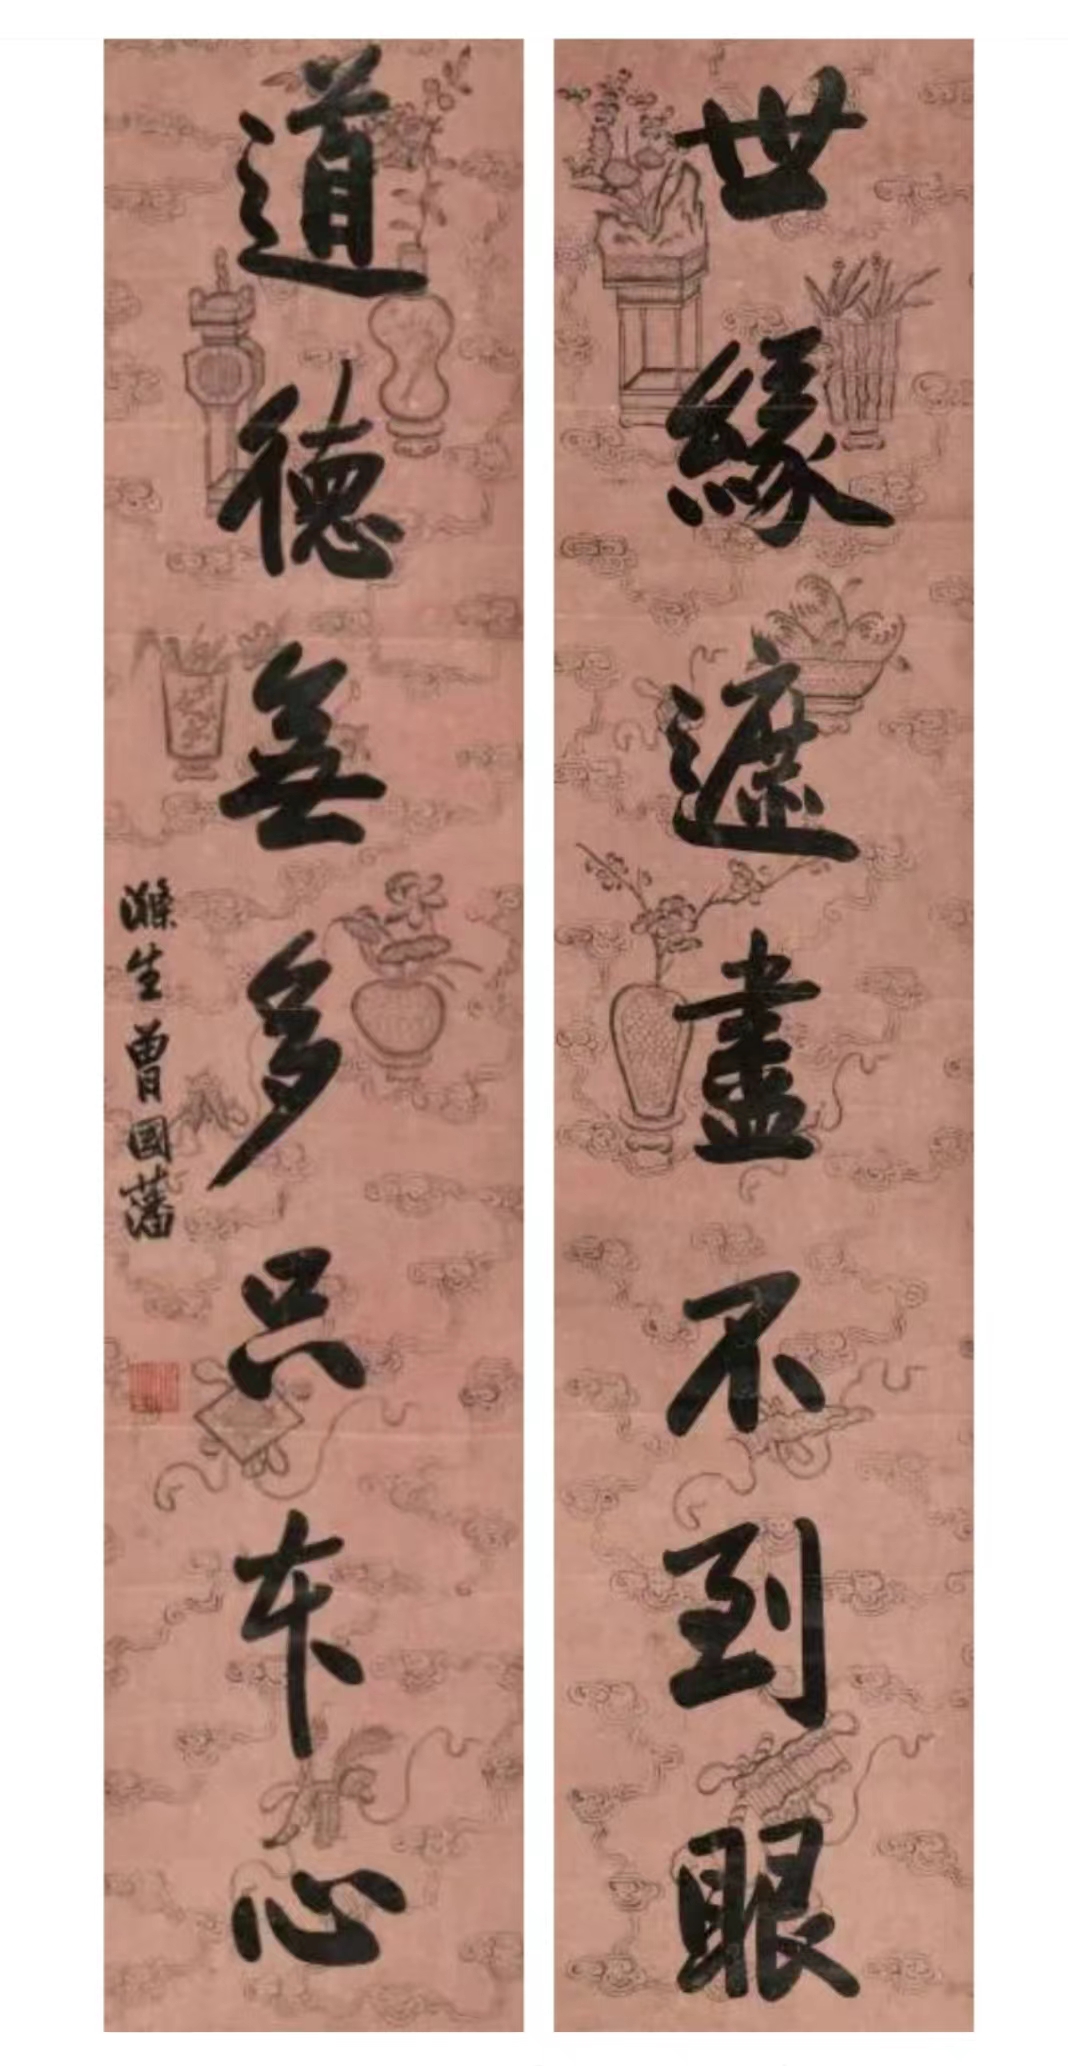 世緣遮盡不到眼
道德無多只本心
滌生曾國藩